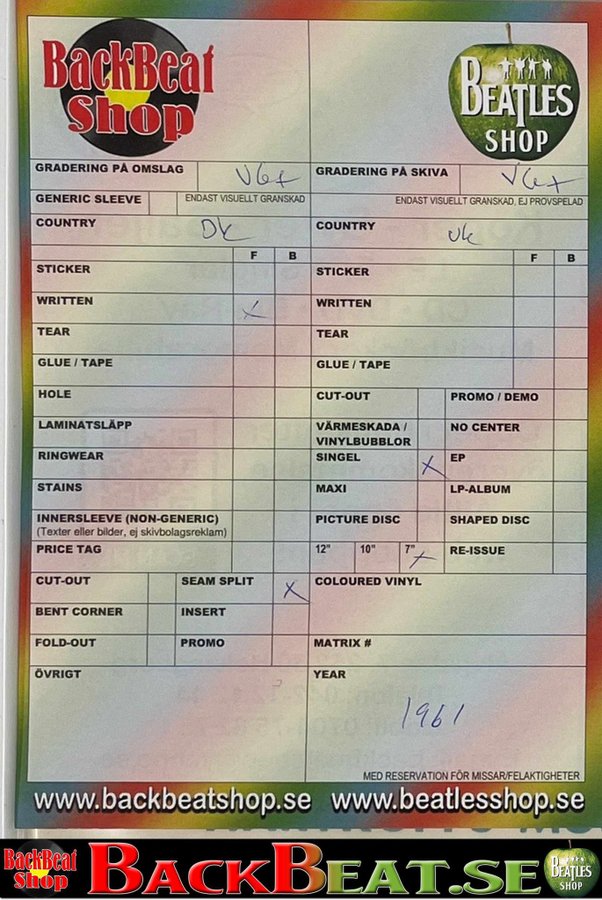 BACKBEAT SHOP
BEATLES SHOP
GRADERING PÅ OMSLAG VG+
GRADERING PÅ SKIVA VG+
GENERIC SLEEVE ENDAST VISUELLT GRANSKAD
ENDAST VISUELLT GRANSKAD, EJ PROVSPELAD
COUNTRY DK
COUNTRY UK
F B
F B
STICKER
STICKER
WRITTEN X
WRITTEN
TEAR
TEAR
GLUE / TAPE
GLUE / TAPE
HOLE
CUT-OUT PROMO / DEMO
LAMINATSLÄPP
VÄRMESKADA / VINYLBUBBLOR NO CENTER
RINGWEAR
SINGEL X EP
STAINS
MAXI LP-ALBUM
INNERSLEEVE (NON-GENERIC)
(Texter eller bilder, ej skivbolagsreklam)
PICTURE DISC SHAPED DISC
PRICE TAG
12" 10" 7" X RE-ISSUE
CUT-OUT SEAM SPLIT X
COLOURED VINYL
BENT CORNER INSERT
FOLD-OUT PROMO
MATRIX #
ÖVRIGT
YEAR
1961
MED RESERVATION FÖR MISSAR/FELAKTIGHETER
www.backbeatshop.se www.beatlesshop.se
BACKBEAT SHOP
BACKBEAT.SE
BEATLES SHOP